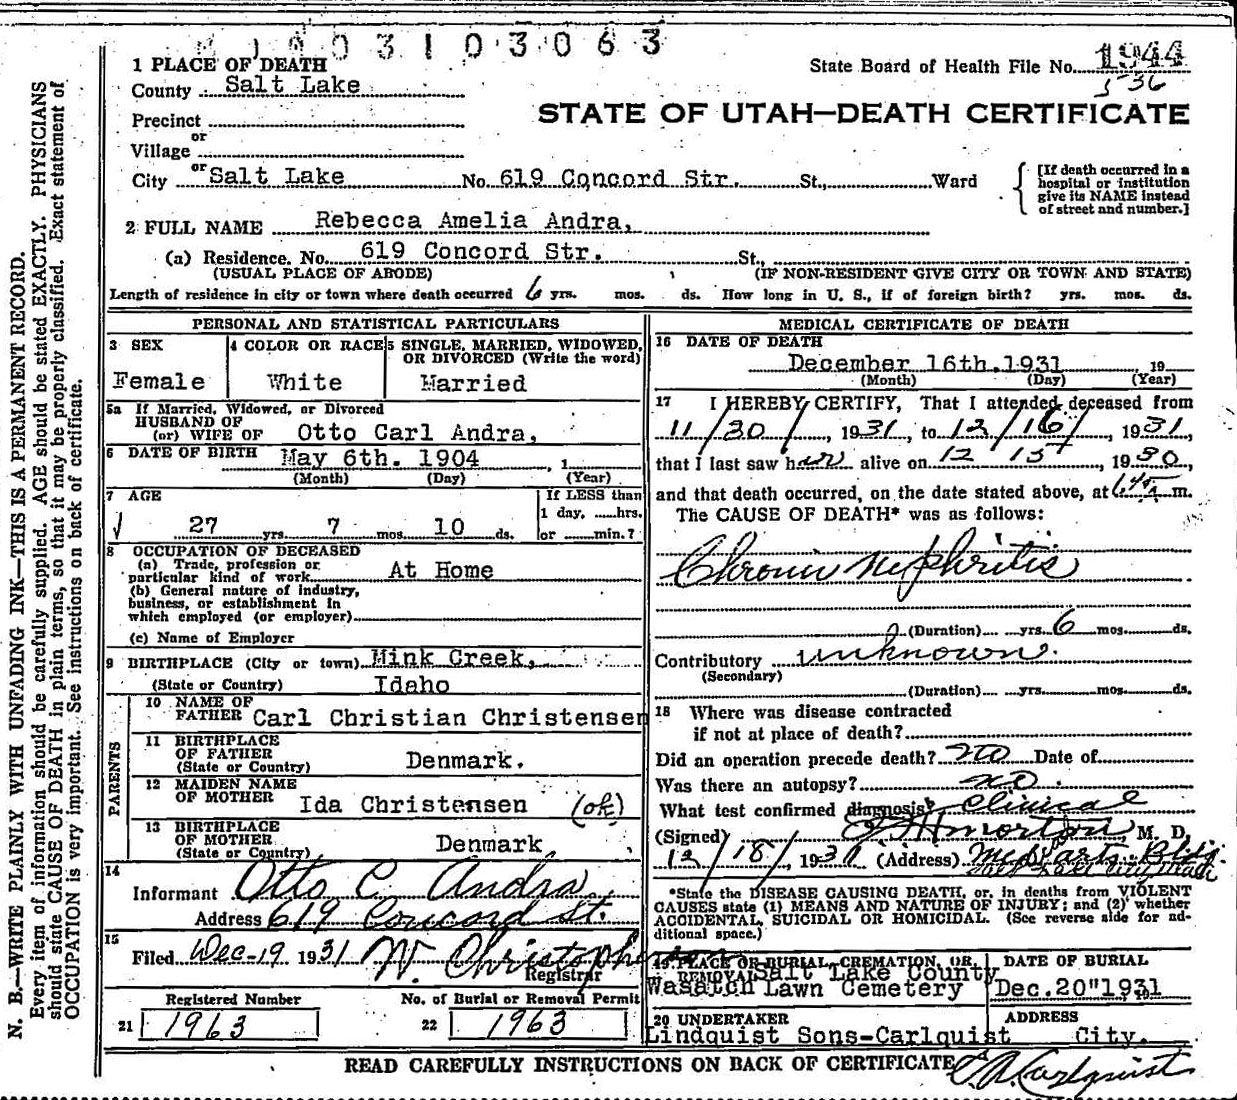 0 3 1 0 3 0 6 3
1 PLACE OF DEATH
State Board of Health File No. 1944
County Salt Lake
536
STATE OF UTAH—DEATH CERTIFICATE
Precinct
or
Village
or
City Salt Lake No. 619 Concord Str. St., Ward
[If death occurred in a
hospital or institution
give its NAME instead
of street and number.]
2 FULL NAME Rebecca Amelia Andra,
(a) Residence. No. 619 Concord Str. St.,
(USUAL PLACE OF ABODE) (IF NON-RESIDENT GIVE CITY OR TOWN AND STATE)
Length of residence in city or town where death occurred 6 yrs. mos. ds. How long in U. S., if of foreign birth? yrs. mos. ds.
PERSONAL AND STATISTICAL PARTICULARS
3 SEX
Female
4 COLOR OR RACE
White
5 SINGLE, MARRIED, WIDOWED,
OR DIVORCED (Write the word)
Married
5a If Married, Widowed, or Divorced
HUSBAND OF
(or) WIFE OF Otto Carl Andra,
6 DATE OF BIRTH May 6th. 1904 , 1
(Month) (Day) (Year)
7 AGE
27 yrs. 7 mos. 10 ds.
If LESS than
1 day, hrs.
or min.?
8 OCCUPATION OF DECEASED
(a) Trade, profession or
particular kind of work At Home
(b) General nature of industry,
business, or establishment in
which employed (or employer)
(c) Name of Employer
9 BIRTHPLACE (City or town) Mink Creek,
(State or Country) Idaho
PARENTS
10 NAME OF
FATHER Carl Christian Christensen
11 BIRTHPLACE
OF FATHER
(State or Country) Denmark.
12 MAIDEN NAME
OF MOTHER Ida Christensen (ok)
13 BIRTHPLACE
OF MOTHER
(State or Country) Denmark
14
Informant Otto C. Andra
Address 619 Concord St.
15
Filed Dec-19 1931
Registrar
Registered Number
21 1963
No. of Burial or Removal Permit
22 1963
MEDICAL CERTIFICATE OF DEATH
16 DATE OF DEATH
December 16th. 1931 19
(Month) (Day) (Year)
17 I HEREBY CERTIFY, That I attended deceased from
11/30/, 1931, to 12/16/, 1931,
that I last saw her alive on 12 15, 1930,
and that death occurred, on the date stated above, at m.
The CAUSE OF DEATH* was as follows:
Chronic Nephritis
(Duration) yrs. 6 mos. ds.
Contributory unknown.
(Secondary)
(Duration) yrs. mos. ds.
18 Where was disease contracted
if not at place of death?
Did an operation precede death? no Date of
Was there an autopsy? no
What test confirmed diagnosis? Clinical
(Signed) Morton, M. D.
12/18/, 1931 (Address) Bldg.
Salt Lake City, Utah
*State the DISEASE CAUSING DEATH, or, in deaths from VIOLENT
CAUSES state (1) MEANS AND NATURE OF INJURY; and (2) whether
ACCIDENTAL, SUICIDAL OR HOMICIDAL. (See reverse side for ad-
ditional space.)
19 PLACE OR BURIAL, CREMATION, OR,
REMOVAL Salt Lake County
Wasatch Lawn Cemetery
DATE OF BURIAL
Dec. 20"1931
20 UNDERTAKER
Lindquist Sons-Carlquist
ADDRESS
City.
READ CAREFULLY INSTRUCTIONS ON BACK OF CERTIFICATE
Carlquist
N. B.—WRITE PLAINLY WITH UNFADING INK—THIS IS A PERMANENT RECORD.
Every item of information should be carefully supplied. AGE should be stated EXACTLY. PHYSICIANS
should state CAUSE OF DEATH in plain terms, so that it may be properly classified. Exact statement of
OCCUPATION is very important. See instructions on back of certificate.